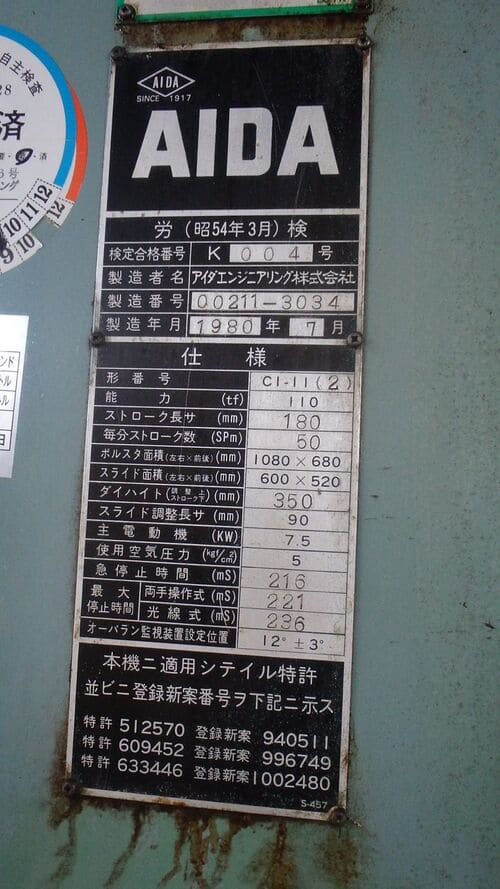 自主検査
28
済
6号
10 11 12
9 10
12
AIDA
SINCE 1917
AIDA
労(昭54年3月)検
検定合格番号 K 004 号
製造者名 アイダエンジニアリング株式会社
製造番号 00211-3034
製造年月 1980 年 7 月
仕様
形番号 C1-11(2)
能力 (tf) 110
ストローク長サ (mm) 180
毎分ストローク数 (SPm) 50
ボルスタ面積(左右×前後)(mm) 1080×680
スライド面積(左右×前後)(mm) 600×520
ダイハイト(調整上ストローク下)(mm) 350
スライド調整長サ (mm) 90
主電動機 (KW) 7.5
使用空気圧力 (kgf/cm2) 5
急停止時間 (mS) 216
最大停止時間 両手操作式 (mS) 221
光線式 (mS) 236
オーバラン監視装置設定位置 12°±3°
本機ニ適用シテイル特許
並ビニ登録新案番号ヲ下記ニ示ス
特許 512570 登録新案 940511
特許 609452 登録新案 996749
特許 633446 登録新案 1002480
S-457